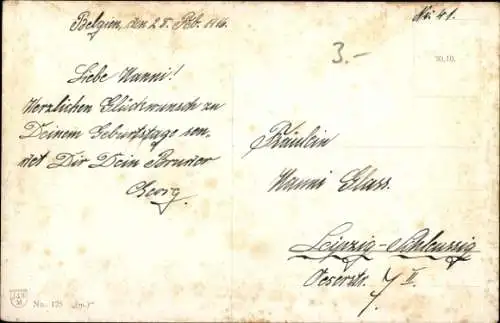 Belgien, den 28. Feb. 1916.
No: 41.
3.-
Liebe Hanni!
Herzlichen Glückwunsch zu
Deinem Geburtstage sen-
det Dir Dein Bruder
Georg.
Fräulein
Hanni Glass.
Leipzig-Schleussig
Oeserstr. 7 II.
No. 178